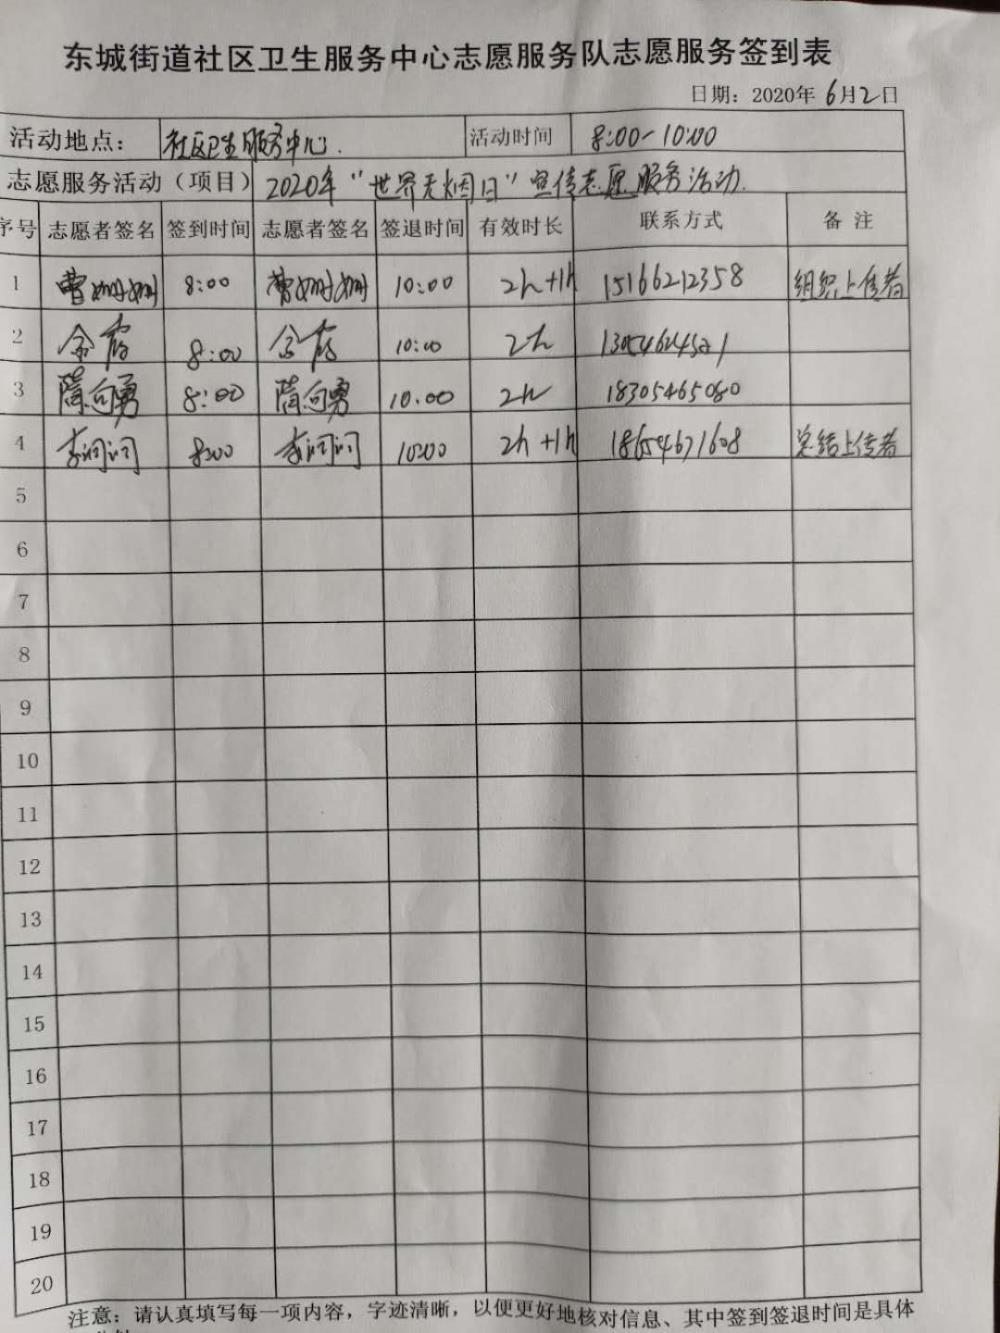 东城街道社区卫生服务中心志愿服务队志愿服务签到表
日期：2020年 6月2日
活动地点： 社区卫生服务中心. 活动时间 8:00-10:00
志愿服务活动（项目） 2020年“世界无烟日”宣传志愿服务活动.
序号 志愿者签名 签到时间 志愿者签名 签退时间 有效时长 联系方式 备 注
1 曹姗姗 8:00 曹姗姗 10:00 2h+1h 15166212358 组织上传者
2 8:00 10:00 2h
3 隋向勇 8:00 隋向勇 10:00 2h 18305465080
4 李闪闪 8:00 李闪闪 10:00 2h+1h 18654671608 总结上传者
5
6
7
8
9
10
11
12
13
14
15
16
17
18
19
20
注意：请认真填写每一项内容，字迹清晰，以便更好地核对信息、其中签到签退时间是具体